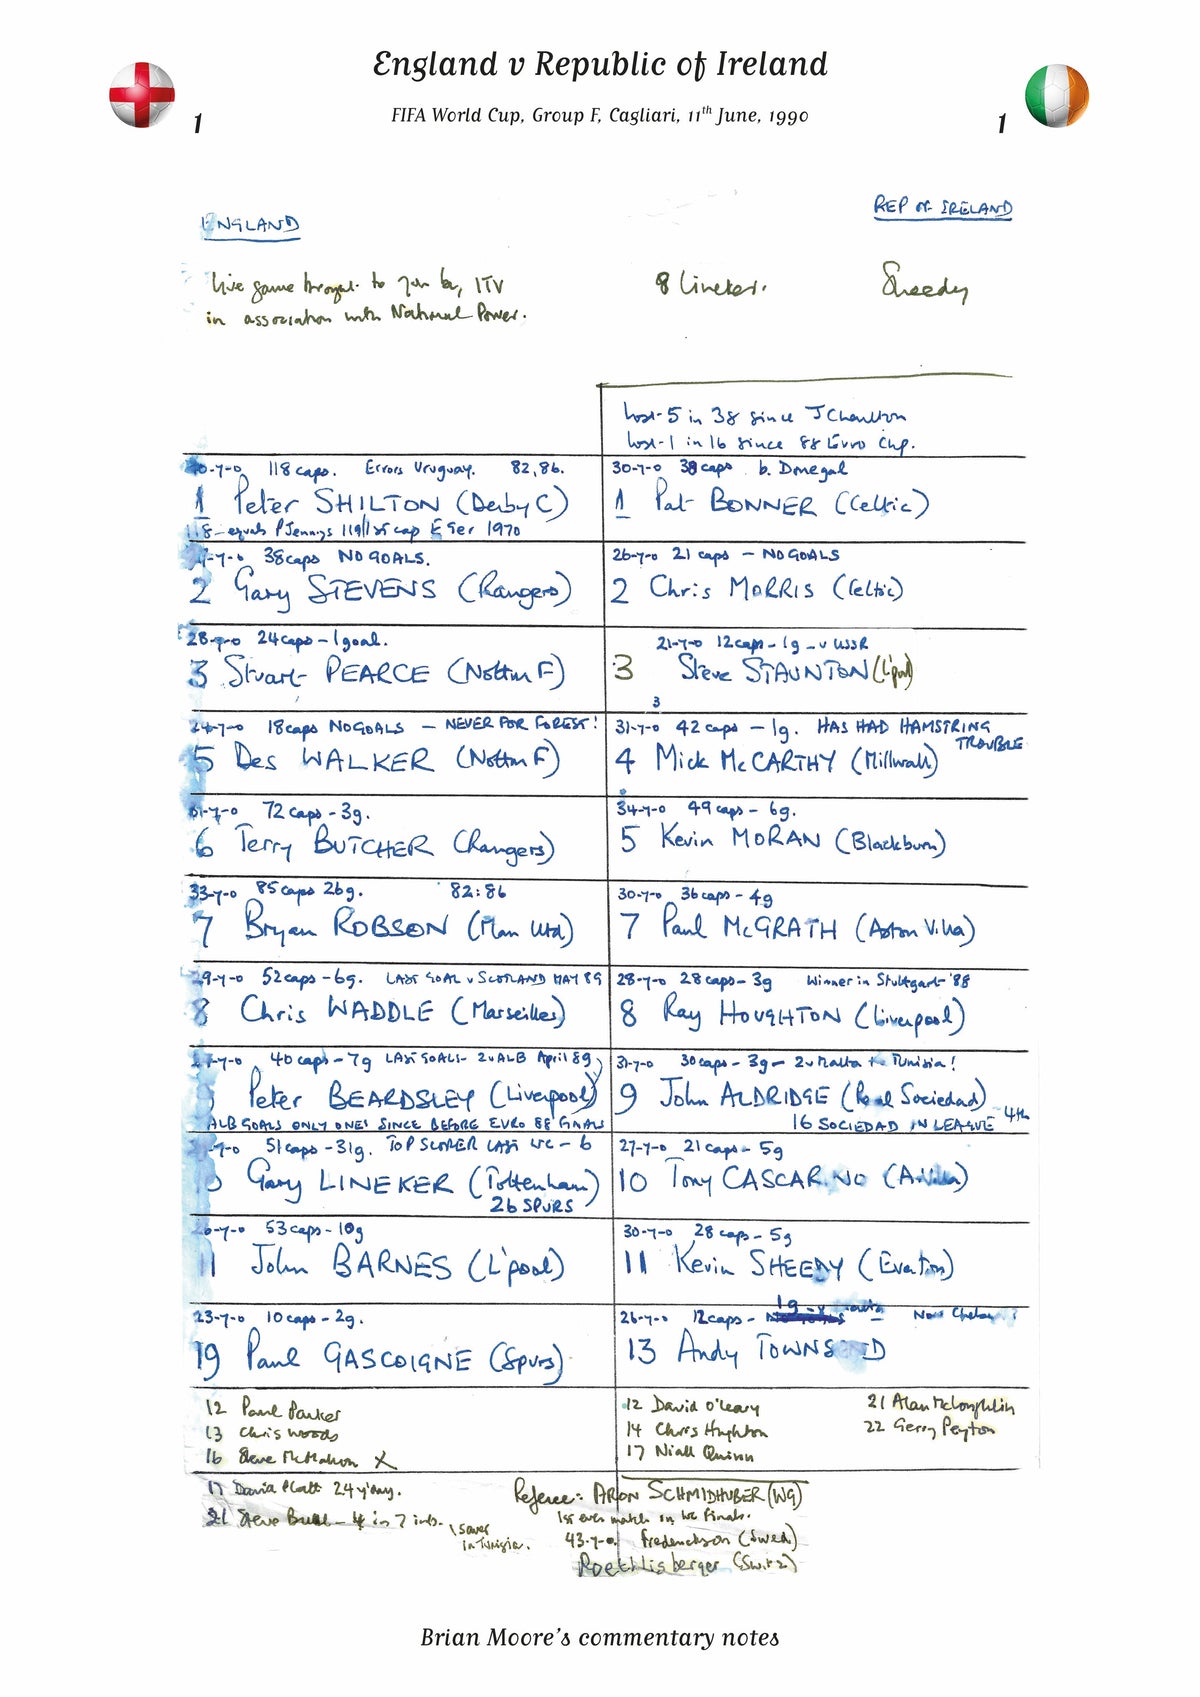 England v Republic of Ireland
FIFA World Cup, Group F, Cagliari, 11th June, 1990
1
1
ENGLAND
REP OF IRELAND
Live game brought to you by ITV
in association with National Power.
8 Lineker.
Sheedy
Lost 5 in 38 since J Charlton
Lost 1 in 16 since 88 Euro Chp.
40-y-o 118 caps. Errors Uruguay. 82,86.
1 Peter SHILTON (Derby C)
equals P Jennings 119/1st cap E Ger 1970
30-y-o 38 caps b. Donegal
1 Pat BONNER (Celtic)
27-y-o 38 caps NO GOALS.
2 Gary STEVENS (Rangers)
26-y-o 21 caps - NO GOALS
2 Chris MORRIS (Celtic)
28-y-o 24 caps - 1 goal.
3 Stuart PEARCE (Nottm F)
21-y-o 12 caps - 1g - v USSR
3 Steve STAUNTON (L'pool)
3
24-y-o 18 caps NO GOALS - NEVER FOR FOREST!
5 Des WALKER (Nottm F)
31-y-o 42 caps - 1g. HAS HAD HAMSTRING TROUBLE
4 Mick McCARTHY (Millwall)
31-y-o 72 caps - 3g.
6 Terry BUTCHER (Rangers)
34-y-o 49 caps - 6g.
5 Kevin MORAN (Blackburn)
33-y-o 85 caps 26g. 82:86
7 Bryan ROBSON (Man Utd)
30-y-o 36 caps - 4g
7 Paul McGRATH (Aston Villa)
29-y-o 52 caps - 6g. LAST GOAL v SCOTLAND MAY 89
8 Chris WADDLE (Marseilles)
28-y-o 28 caps - 3g Winner in Stuttgart '88
8 Ray HOUGHTON (Liverpool)
-y-o 40 caps - 7g LAST GOALS - 2 v ALB April 89
Peter BEARDSLEY (Liverpool)
ALB GOALS ONLY ONES SINCE BEFORE EURO 88 FINALS
31-y-o 30 caps - 3g - 2 v Malta + Tunisia!
9 John ALDRIDGE (Real Sociedad)
16 SOCIEDAD IN LEAGUE - 4th
-y-o 51 caps - 31g. TOP SCORER LAST WC - 6
Gary LINEKER (Tottenham)
26 SPURS
27-y-o 21 caps - 5g
10 Tony CASCARINO (A. Villa)
26-y-o 53 caps - 10g
11 John BARNES (L'pool)
30-y-o 28 caps - 5g
11 Kevin SHEEDY (Everton)
23-y-o 10 caps - 2g.
19 Paul GASCOIGNE (Spurs)
26-y-o 12 caps - 1g - v Now Chelsea ?
13 Andy TOWNSEND
12 Paul Parker
13 Chris Woods
16 Steve McMahon X
17 David Platt 24 y'day.
21 Steve Bull - 4 in 7 ints. \ saver in Tunisia.
12 David O'Leary
14 Chris Hughton
17 Niall Quinn
21 Alan McLoughlin
22 Gerry Peyton
Referee: ARON SCHMIDHUBER (WG)
1st ever match in WC Finals.
43-y-o. Frederickson (Swed)
Roethlisberger (Switz)
Brian Moore's commentary notes